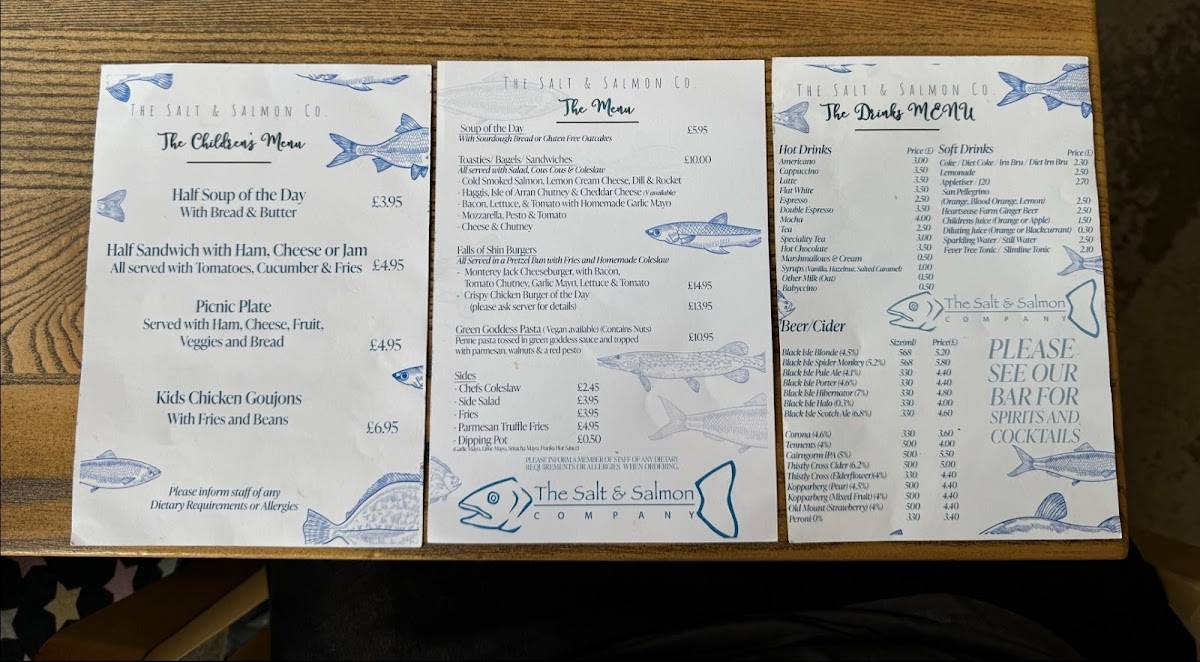 THE SALT & SALMON CO.
The Children's Menu
Half Soup of the Day
With Bread & Butter £3.95
Half Sandwich with Ham, Cheese or Jam
All served with Tomatoes, Cucumber & Fries £4.95
Picnic Plate
Served with Ham, Cheese, Fruit,
Veggies and Bread £4.95
Kids Chicken Goujons
With Fries and Beans £6.95
Please inform staff of any
Dietary Requirements or Allergies
THE SALT & SALMON CO.
The Menu
Soup of the Day £5.95
With Sourdough Bread or Gluten Free Oatcakes
Toasties/ Bagels/ Sandwiches £10.00
All served with Salad, Cous Cous & Coleslaw
- Cold Smoked Salmon, Lemon Cream Cheese, Dill & Rocket
- Haggis, Isle of Arran Chutney & Cheddar Cheese (V available)
- Bacon, Lettuce, & Tomato with Homemade Garlic Mayo
- Mozzarella, Pesto & Tomato
- Cheese & Chutney
Falls of Shin Burgers
All Served in a Pretzel Bun with Fries and Homemade Coleslaw
- Monterey Jack Cheeseburger, with Bacon,
Tomato Chutney, Garlic Mayo, Lettuce & Tomato £14.95
- Crispy Chicken Burger of the Day
(please ask server for details) £13.95
Green Goddess Pasta (Vegan available) (Contains Nuts) £10.95
Penne pasta tossed in green goddess sauce and topped
with parmesan, walnuts & a red pesto
Sides
- Chefs Coleslaw £2.45
- Side Salad £3.95
- Fries £3.95
- Parmesan Truffle Fries £4.95
- Dipping Pot £0.50
(Garlic Mayo, Lime Mayo, Sriracha Mayo, Franks Hot Sauce)
PLEASE INFORM A MEMBER OF STAFF OF ANY DIETARY
REQUIREMENTS OR ALLERGIES WHEN ORDERING.
The Salt & Salmon
COMPANY
THE SALT & SALMON CO.
The Drinks MENU
Hot Drinks Price (£)
Americano 3.00
Cappuccino 3.50
Latte 3.50
Flat White 3.50
Espresso 2.50
Double Espresso 3.50
Mocha 4.00
Tea 2.50
Speciality Tea 3.00
Hot Chocolate 3.50
Marshmallows & Cream 0.50
Syrups (Vanilla, Hazelnut, Salted Caramel) 1.00
Other Milk (Oat) 0.50
Babyccino 0.50
Soft Drinks Price (£)
Coke / Diet Coke / Irn Bru / Diet Irn Bru 2.30
Lemonade 2.50
Appletiser / J2O 2.70
San Pellegrino
(Orange, Blood Orange, Lemon) 2.50
Heartsease Farm Ginger Beer 2.50
Childrens Juice (Orange or Apple) 1.50
Diluting Juice (Orange or Blackcurrant) 0.30
Sparkling Water / Still Water 2.50
Fever Tree Tonic / Slimline Tonic 2.10
The Salt & Salmon
COMPANY
Beer/Cider
Size(ml) Price(£)
Black Isle Blonde (4.5%) 568 5.20
Black Isle Spider Monkey (5.2%) 568 5.80
Black Isle Pale Ale (4.1%) 330 4.40
Black Isle Porter (4.6%) 330 4.40
Black Isle Hibernator (7%) 330 4.80
Black Isle Halo (0.3%) 330 4.00
Black Isle Scotch Ale (6.8%) 330 4.60
Corona (4.6%) 330 3.60
Tennents (4%) 500 4.00
Cairngorm IPA (5%) 500 5.50
Thistly Cross Cider (6.2%) 500 5.00
Thistly Cross (Elderflower)(4%) 330 4.40
Kopparberg (Pear) (4.5%) 500 4.40
Kopparberg (Mixed Fruit) (4%) 500 4.40
Old Mount (Strawberry) (4%) 500 4.40
Peroni 0% 330 3.40
PLEASE
SEE OUR
BAR FOR
SPIRITS AND
COCKTAILS